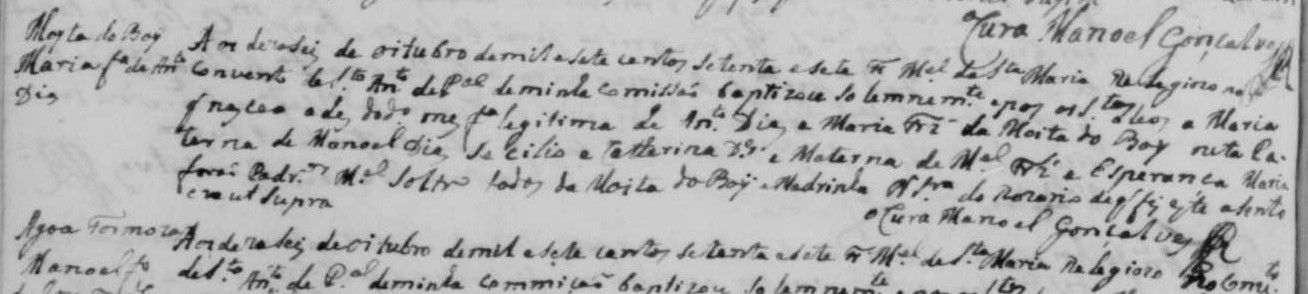 o Cura Manoel Gonçalves
Moyta do Boy
Maria f.ª de An.to
Dias
Aos dezaseis de oitubro de mil e sete centos setenta e sete Fr. M.el de S.ta Maria Relegiozo no
convento de S.to An.to de P.al de minha comissão baptizou solemnem.te e pos os S.tos oleos a Maria
q nasceo a des do do mes f.ª legitima de An.to Dias e Maria Frz da Moita do Boy neta Pa-
terna de Manoel Dias e Catterina e Materna de M.el Frz e Esperança Maria
forão Padr.os M.el todos da Moita do Boy e Madrinha N. Sr.ª do Rozario de q fis este asento
era ut Supra
o Cura Manoel Gonçalves
Agoa Formoza
Manoel f.o
Aos dezaseis de oitubro de mil e sete centos setenta e sete Fr. M.el de S.ta Maria Relegiozo no Conv.to
de S.to An.to de P.al de minha commição baptizou solemnem.te